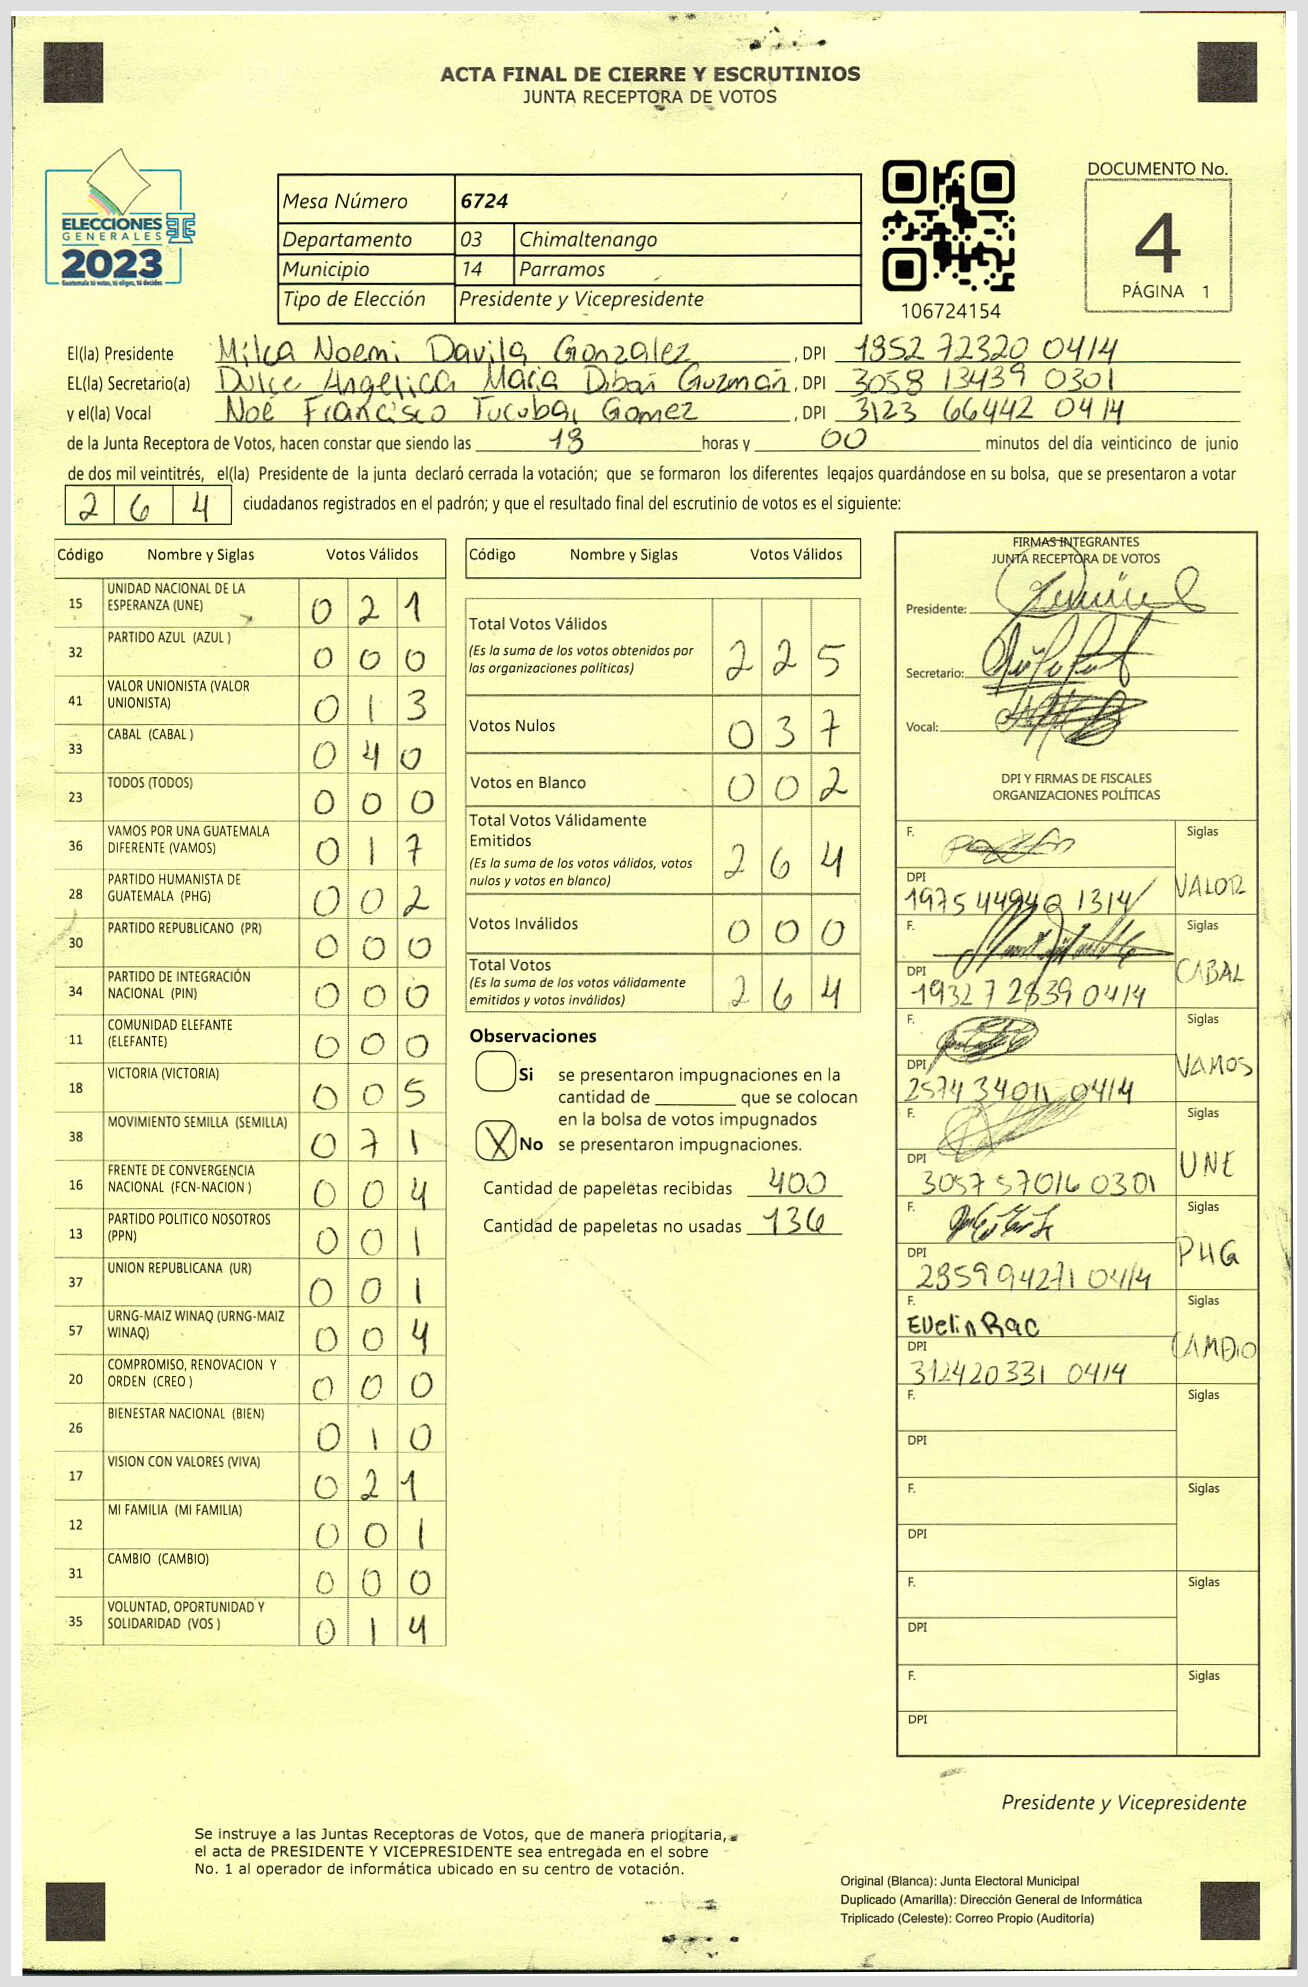 ACTA FINAL DE CIERRE Y ESCRUTINIOS
JUNTA RECEPTORA DE VOTOS
ELECCIONES
GENERALES
2023
Guatemala tú votas, tú eliges, tú decides
Mesa Número 6724
Departamento 03 Chimaltenango
Municipio 14 Parramos
Tipo de Elección Presidente y Vicepresidente
106724154
DOCUMENTO No.
4
PÁGINA 1
El(la) Presidente Milca Noemi Davila Gonzalez, DPI 1952 72320 0414
EL(la) Secretario(a) Dulce Angelica Maria Guzmán, DPI 3058 13439 0301
y el(la) Vocal Noé Francisco Tucubal Gomez, DPI 3123 66442 0414
de la Junta Receptora de Votos, hacen constar que siendo las 18 horas y 00 minutos del día veinticinco de junio
de dos mil veintitrés, el(la) Presidente de la junta declaró cerrada la votación; que se formaron los diferentes legajos guardándose en su bolsa, que se presentaron a votar
264 ciudadanos registrados en el padrón; y que el resultado final del escrutinio de votos es el siguiente:
Código Nombre y Siglas Votos Válidos
15 UNIDAD NACIONAL DE LA ESPERANZA (UNE) 021
32 PARTIDO AZUL (AZUL ) 000
41 VALOR UNIONISTA (VALOR UNIONISTA) 013
33 CABAL (CABAL ) 040
23 TODOS (TODOS) 000
36 VAMOS POR UNA GUATEMALA DIFERENTE (VAMOS) 017
28 PARTIDO HUMANISTA DE GUATEMALA (PHG) 002
30 PARTIDO REPUBLICANO (PR) 000
34 PARTIDO DE INTEGRACIÓN NACIONAL (PIN) 000
11 COMUNIDAD ELEFANTE (ELEFANTE) 000
18 VICTORIA (VICTORIA) 005
38 MOVIMIENTO SEMILLA (SEMILLA) 071
16 FRENTE DE CONVERGENCIA NACIONAL (FCN-NACION ) 004
13 PARTIDO POLITICO NOSOTROS (PPN) 001
37 UNION REPUBLICANA (UR) 001
57 URNG-MAIZ WINAQ (URNG-MAIZ WINAQ) 004
20 COMPROMISO, RENOVACION Y ORDEN (CREO ) 000
26 BIENESTAR NACIONAL (BIEN) 010
17 VISION CON VALORES (VIVA) 021
12 MI FAMILIA (MI FAMILIA) 001
31 CAMBIO (CAMBIO) 000
35 VOLUNTAD, OPORTUNIDAD Y SOLIDARIDAD (VOS ) 014
Código Nombre y Siglas Votos Válidos
Total Votos Válidos 225
(Es la suma de los votos obtenidos por
las organizaciones políticas)
Votos Nulos 037
Votos en Blanco 002
Total Votos Válidamente
Emitidos 264
(Es la suma de los votos válidos, votos
nulos y votos en blanco)
Votos Inválidos 000
Total Votos 264
(Es la suma de los votos válidamente
emitidos y votos inválidos)
Observaciones
Si se presentaron impugnaciones en la
cantidad de ________ que se colocan
en la bolsa de votos impugnados
X No se presentaron impugnaciones.
Cantidad de papeletas recibidas 400
Cantidad de papeletas no usadas 136
FIRMAS INTEGRANTES
JUNTA RECEPTORA DE VOTOS
Presidente:
Secretario:
Vocal:
DPI Y FIRMAS DE FISCALES
ORGANIZACIONES POLÍTICAS
F. Siglas
DPI 1975 44942 1314 VALOR
F. Siglas
DPI 1932 7 2839 0414 CABAL
F. Siglas
DPI 2574 34011 0414 VAMOS
F. Siglas
DPI 3057 57016 0301 UNE
F. Siglas
DPI 2859 94271 0414 PHG
F. Evelin Rac Siglas
DPI 312420331 0414 CAMBIO
F. Siglas
DPI
F. Siglas
DPI
F. Siglas
DPI
F. Siglas
DPI
Presidente y Vicepresidente
Se instruye a las Juntas Receptoras de Votos, que de manera prioritaria,
el acta de PRESIDENTE Y VICEPRESIDENTE sea entregada en el sobre
No. 1 al operador de informática ubicado en su centro de votación.
Original (Blanca): Junta Electoral Municipal
Duplicado (Amarilla): Dirección General de Informática
Triplicado (Celeste): Correo Propio (Auditoría)